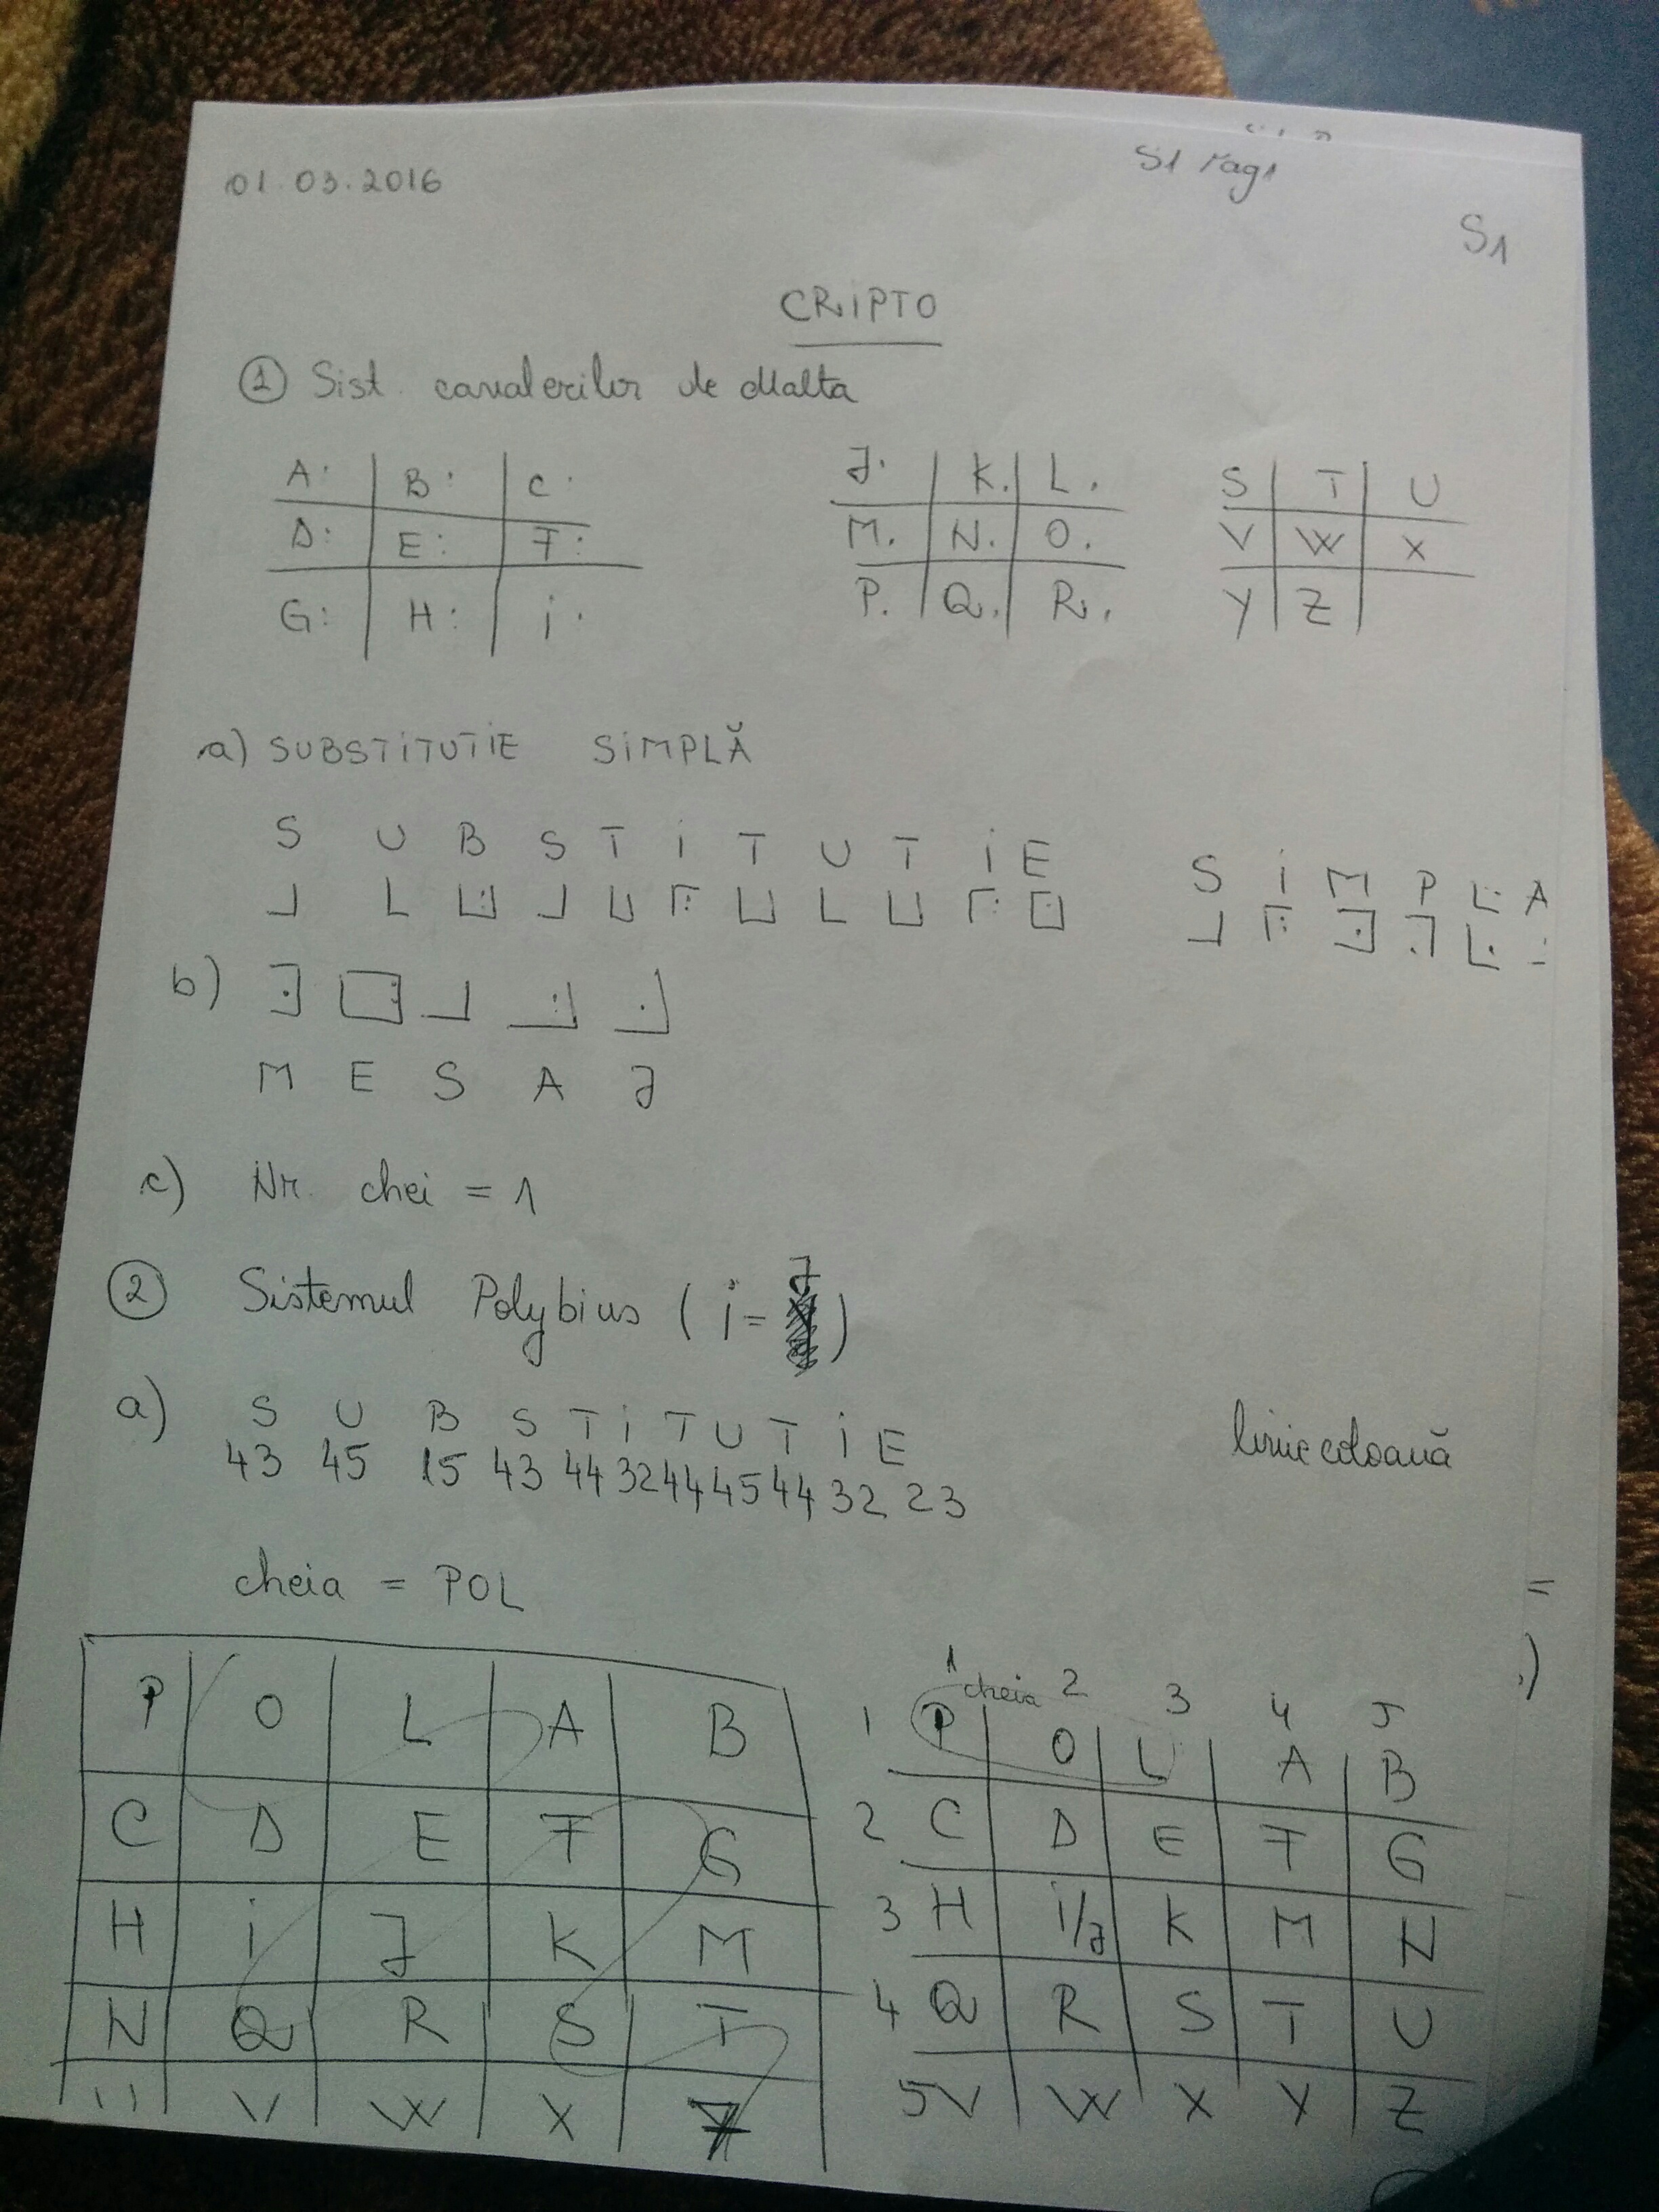 01.03.2016
S1 Pag1
S1
CRIPTO
① Sist. cavalerilor de Malta
A: B: C:
D: E: F:
G: H: i:
J. K. L.
M. N. O.
P. Q. R.
S T U
V W X
Y Z
a) SUBSTITUTIE SIMPLĂ
S U B S T i T U T i E S i M P L A
b)
M E S A J
c) Nr. chei = 1
② Sistemul Polybius (i=J)
a) S U B S T i T U T i E
43 45 15 43 44 32 44 45 44 32 23
linie coloană
cheia = POL
P O L A B
C D E F G
H i J K M
N Q R S T
U V W X Z
cheia
1 2 3 4 5
1 P O L A B
2 C D E F G
3 H i/J K M N
4 Q R S T U
5 V W X Y Z